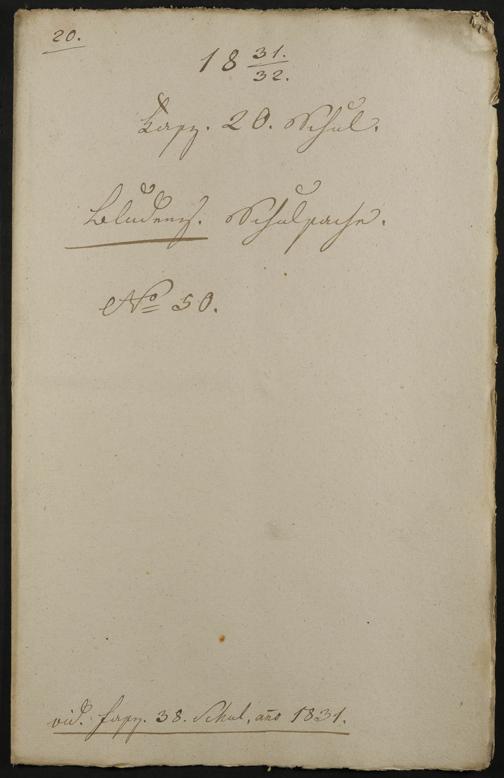 20.
18 31./32.
Fasz. 20. Schul.
Bludenz. Schulsache.
No 50.
vid. fasz. 38. Schul, año 1831.